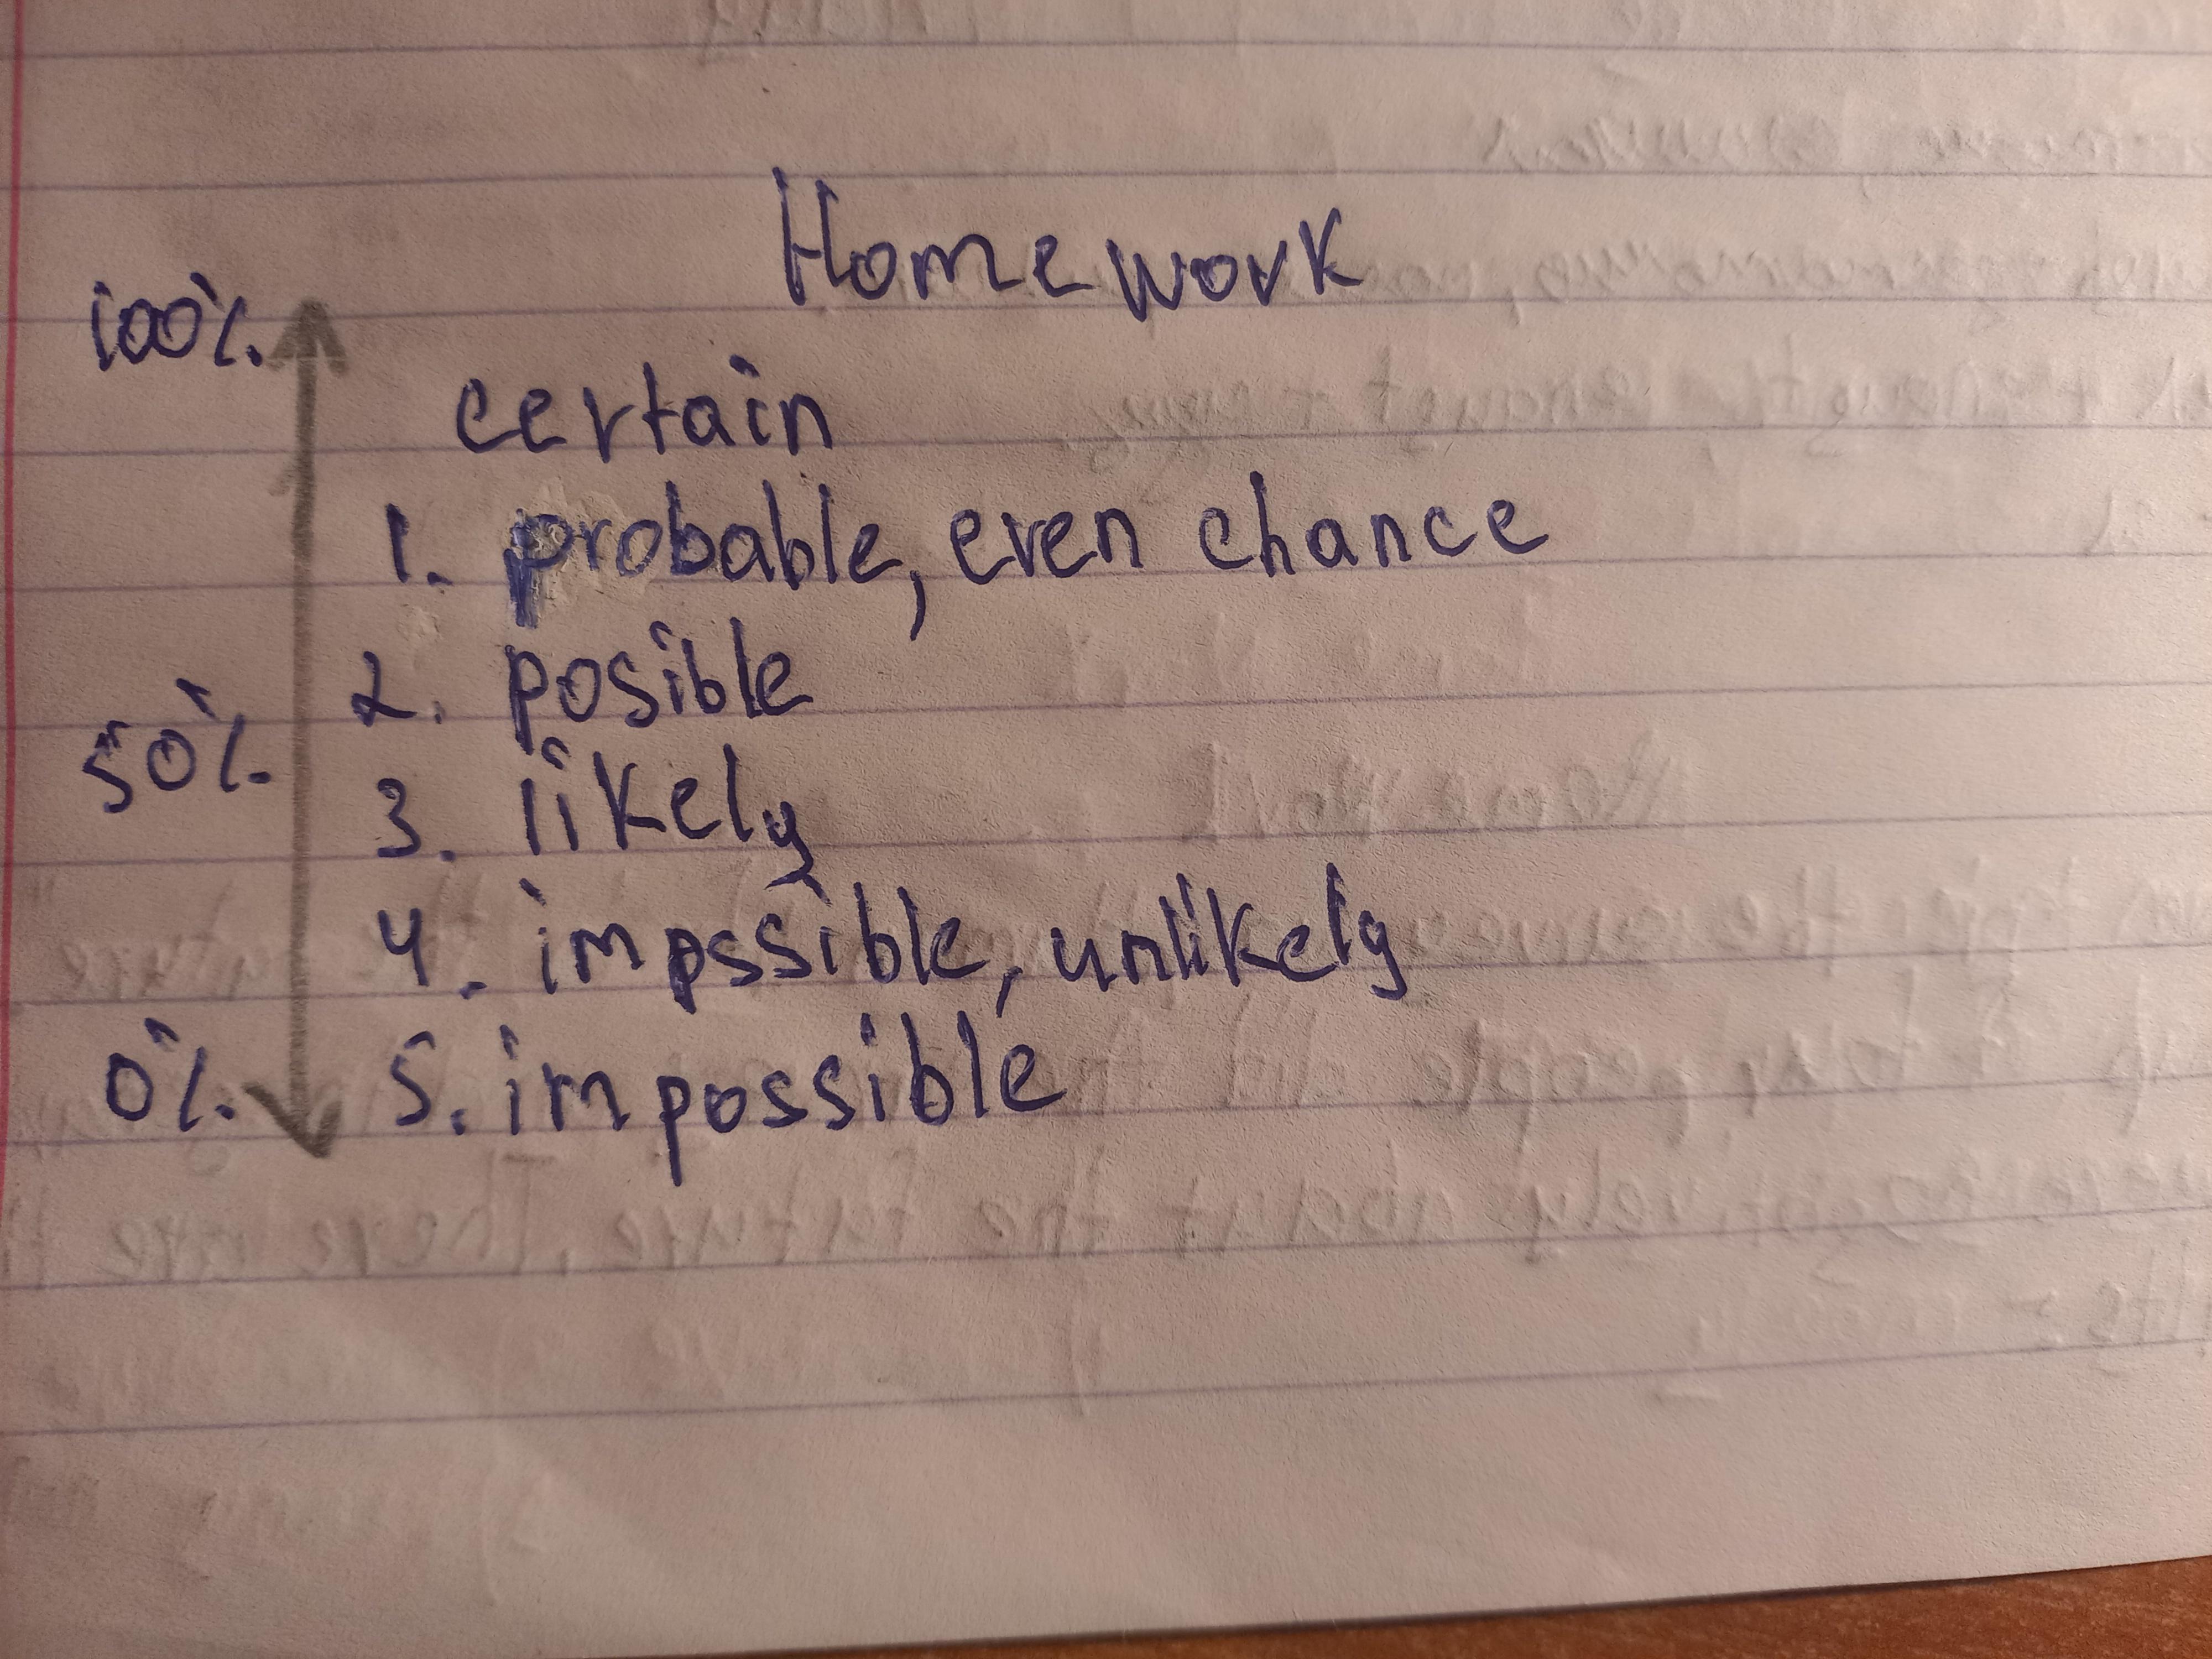 Homework
100%
certain
1. probable, even chance
2. posible
50%
3. likely
4. impssible, unlikely
0% 5. impossible